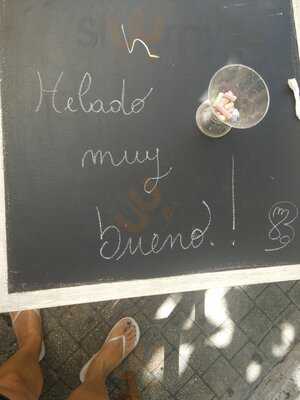 Helado
muy
bueno.!